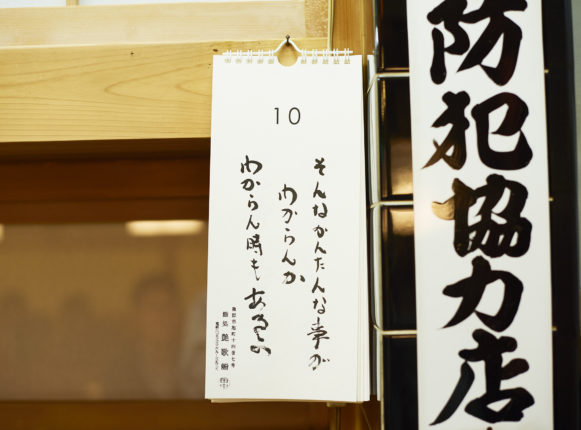 10
そんなかんたんな事が
わからんか
わからん時も
あるさ
防犯協力店